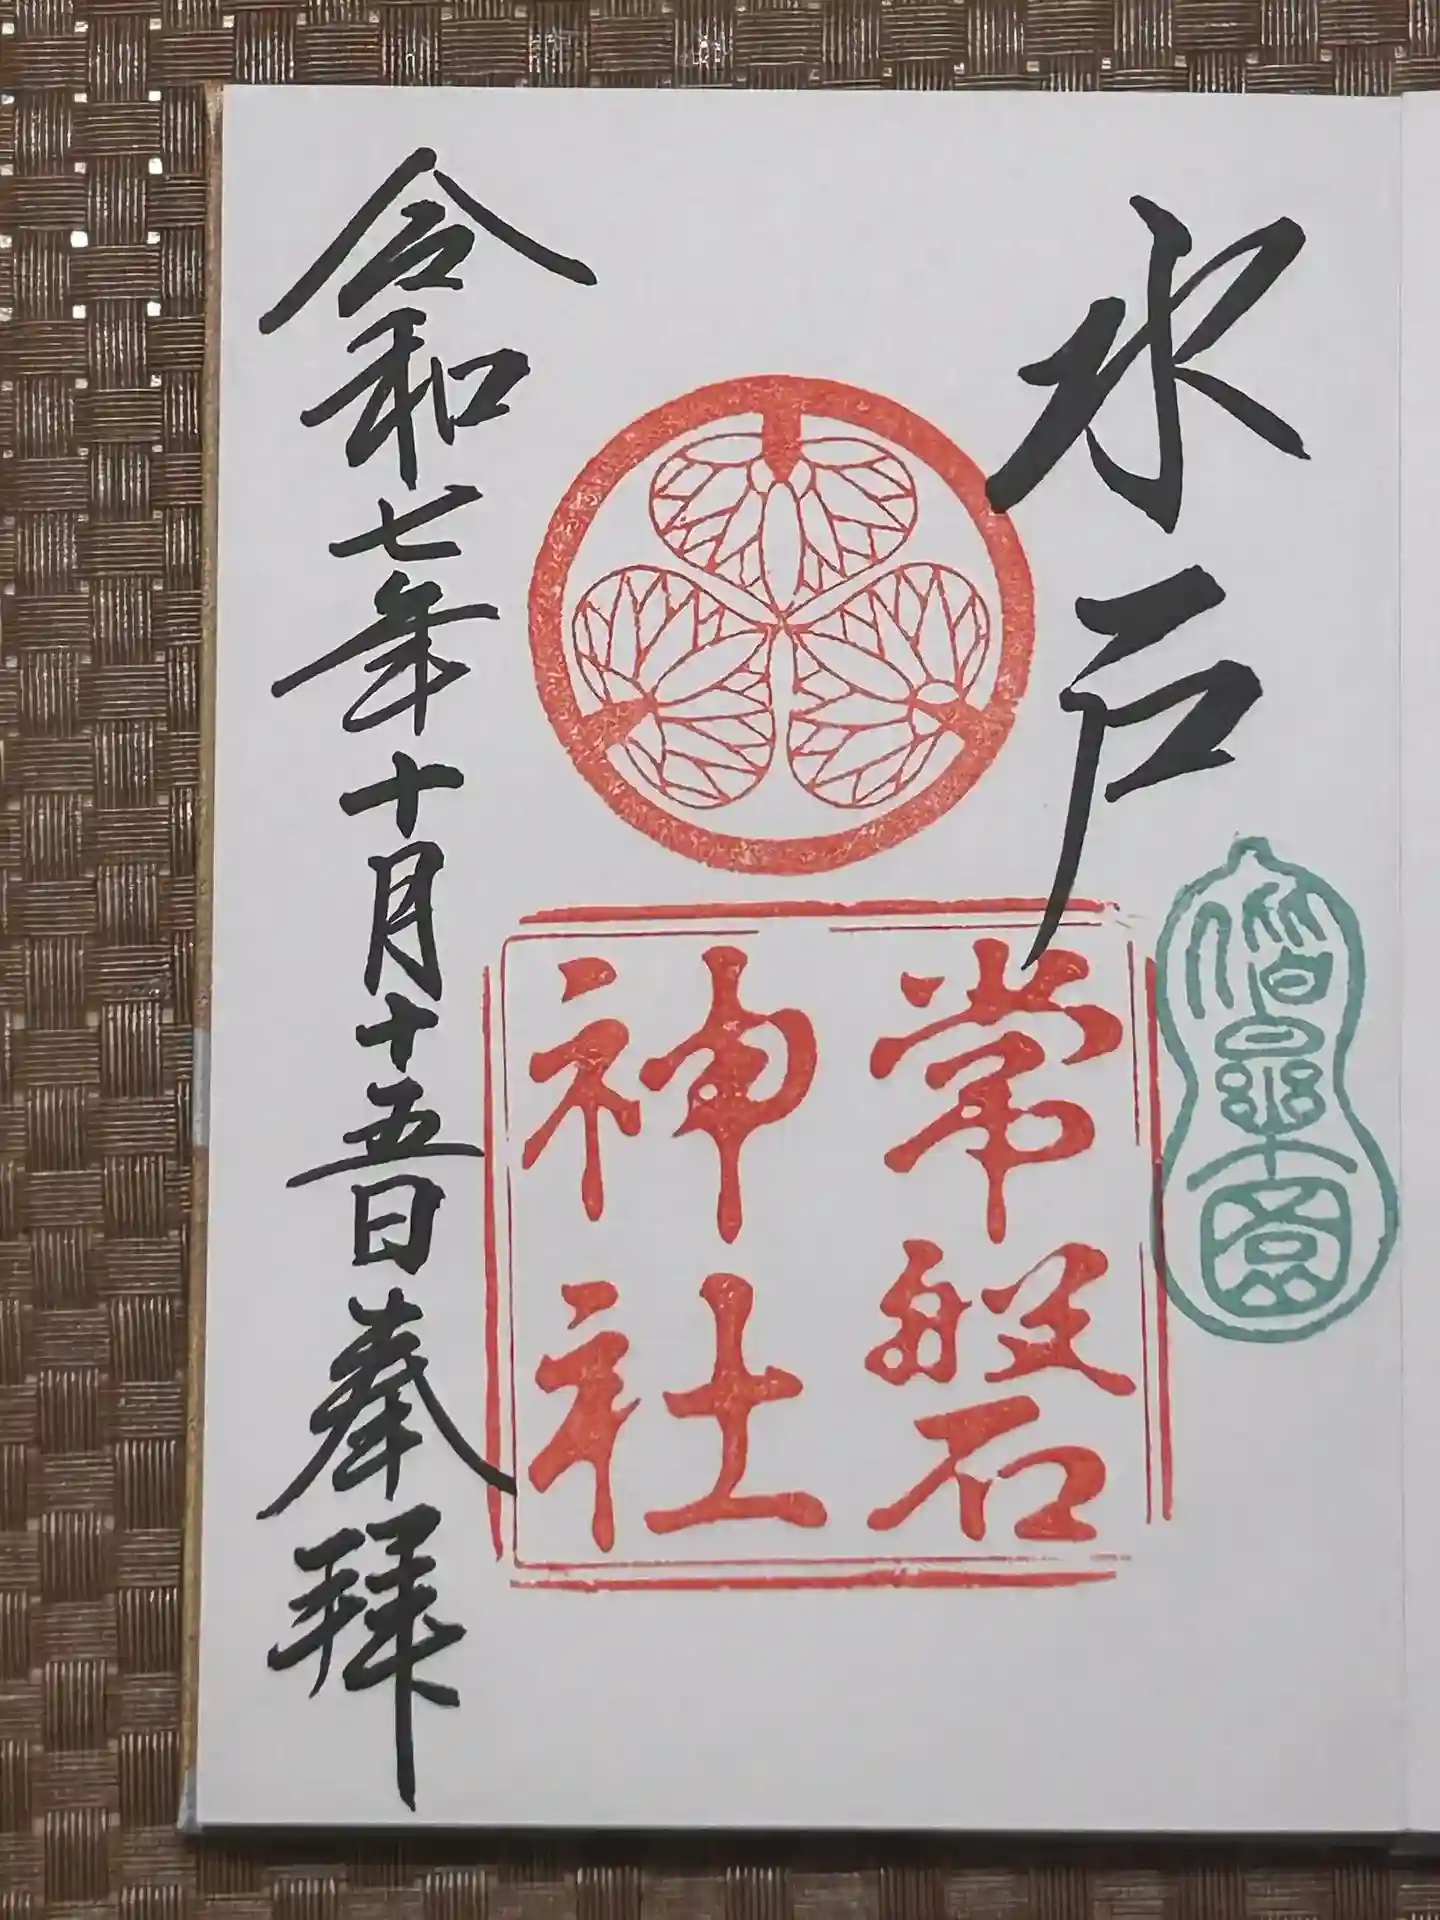 水戸
偕楽園
常磐
神社
令和七年十月十五日奉拝